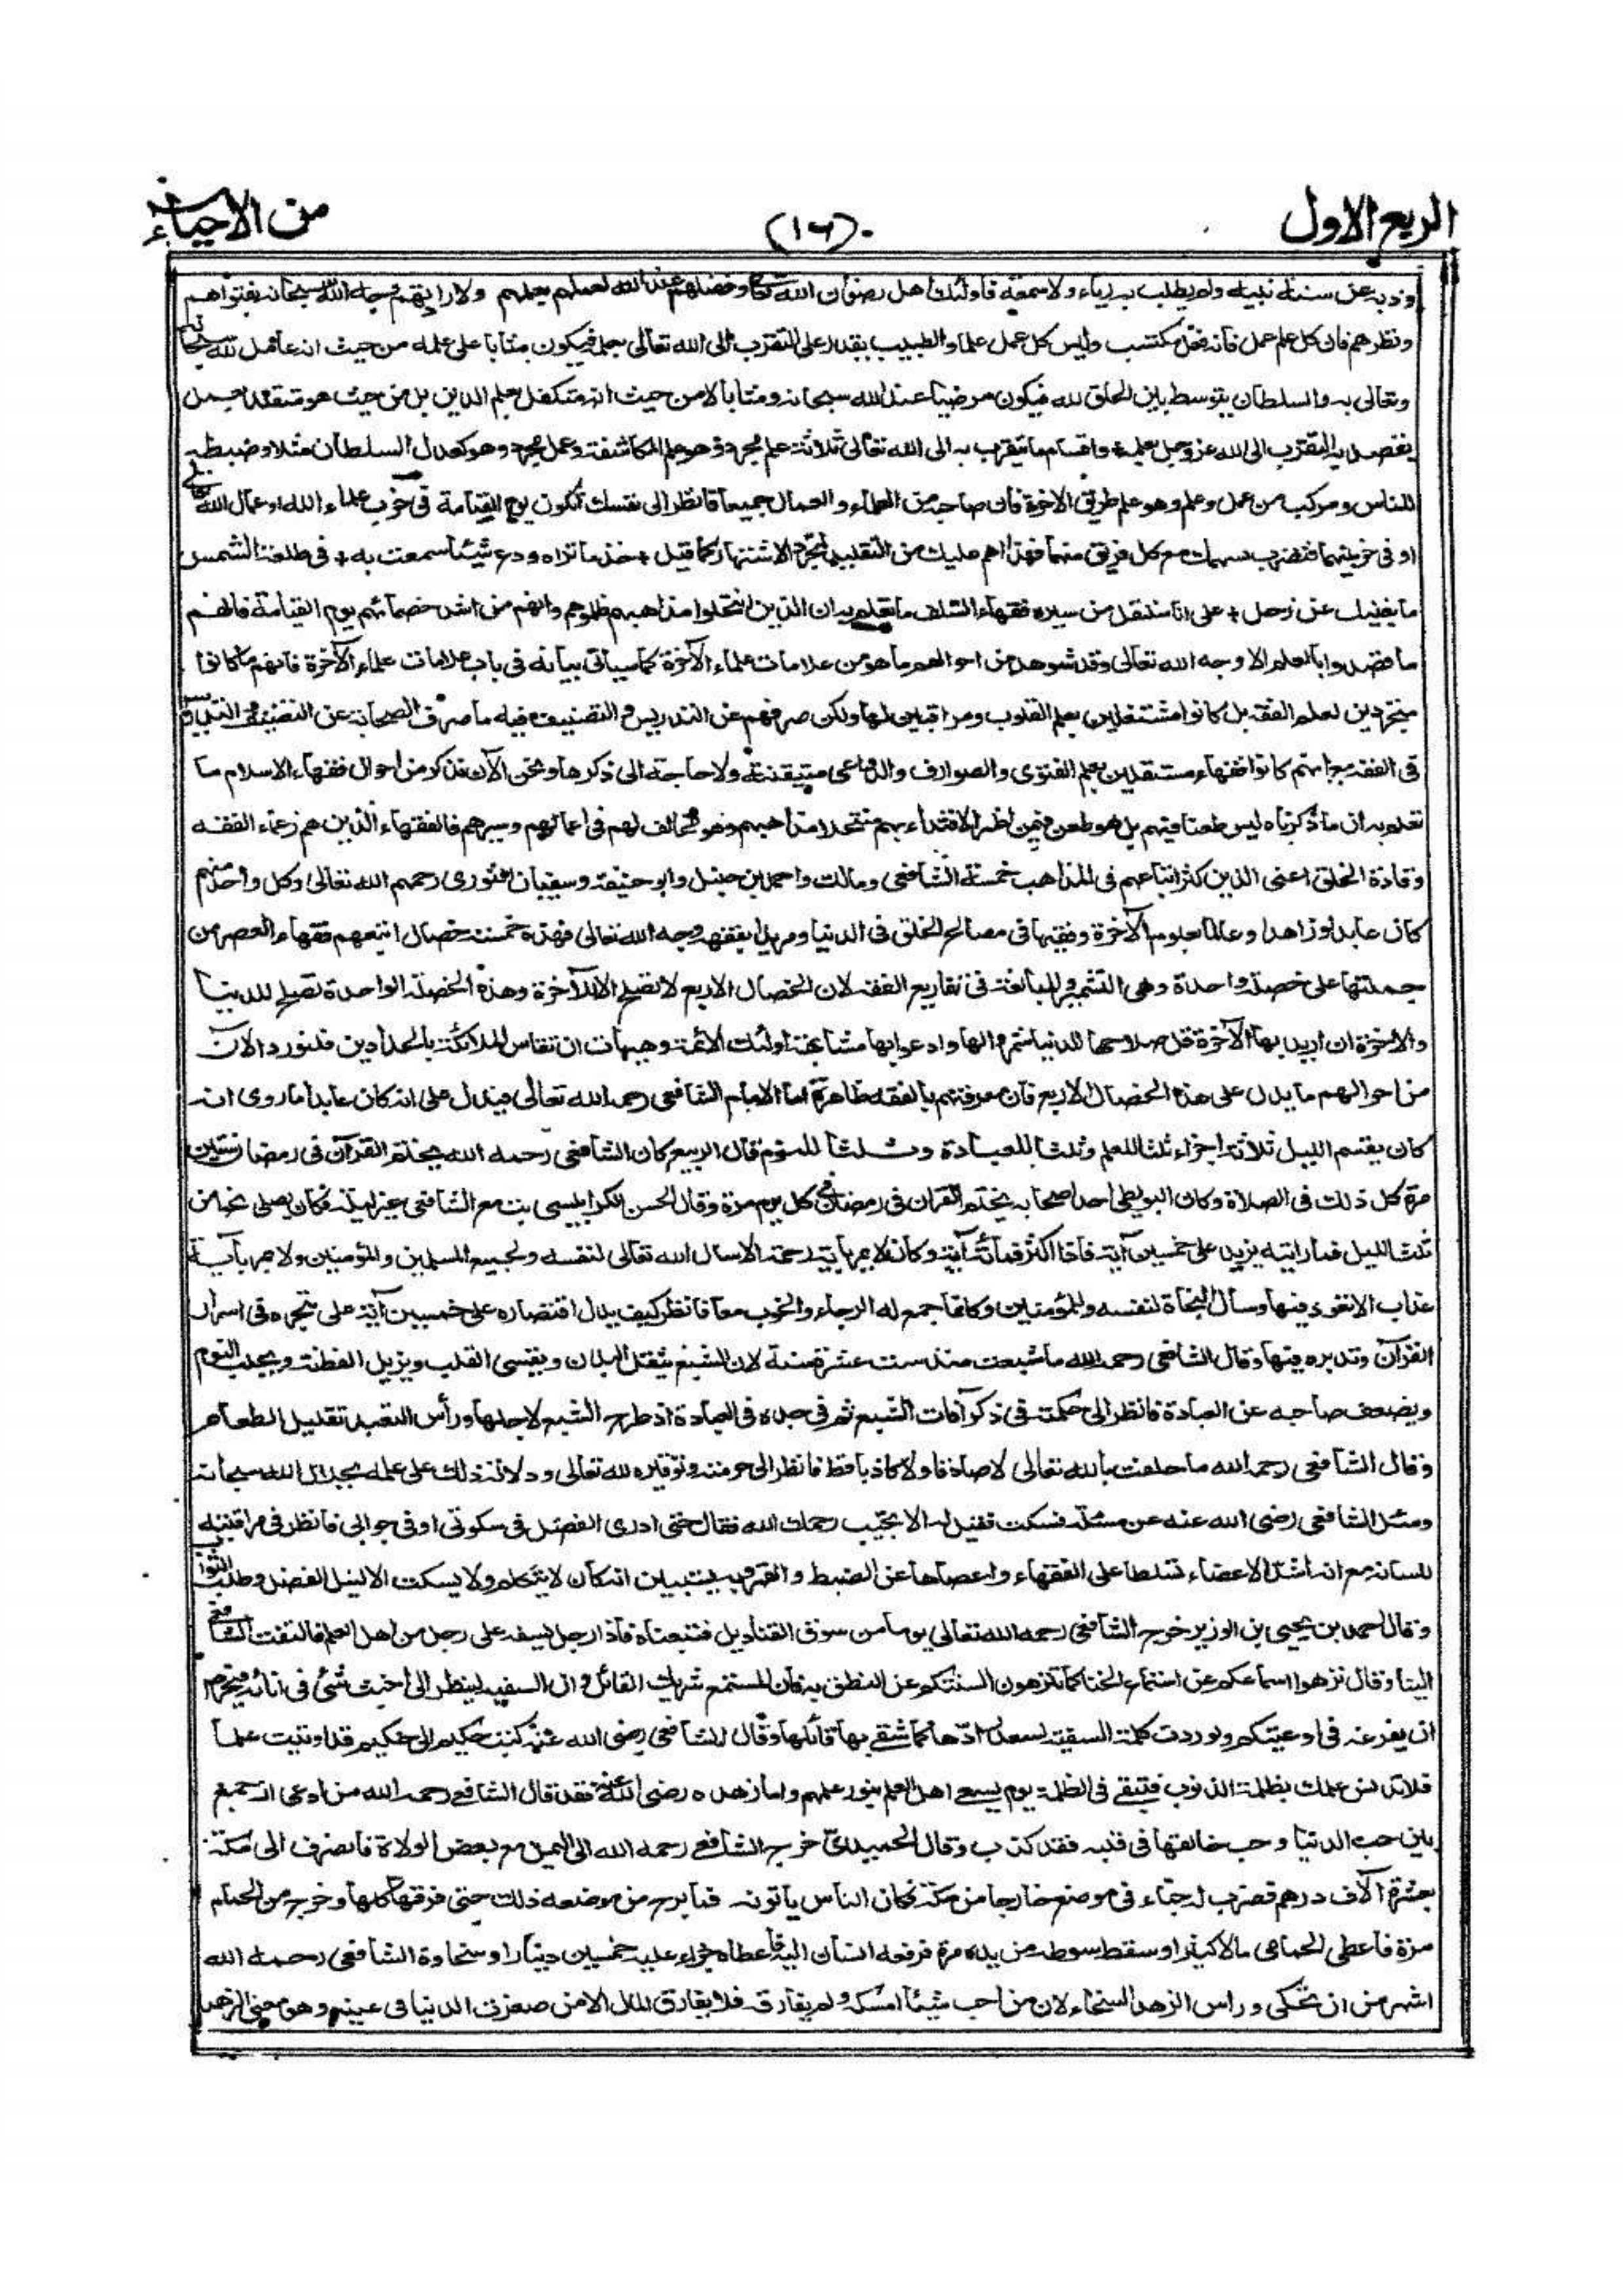 الربع الاول
(١٦)
من الاحياء
وذبه عن سنة نبيه ولم يطلب به رياء ولا سمعة فاولئك اهل رضوان الله تعالى وفضلهم عند الله لعملهم بعلمهم ولارادتهم وجه الله سبحانه بفتواهم
ونظرهم فان كل علم عمل فانه فعل مكتسب وليس كل عمل علما والطبيب يقدر على التقرب الى الله تعالى بعلمه فيكون مثابا على علمه من حيث انه عامل لله سبحانه
وتعالى به والسلطان يتوسط بين الخلق لله فيكون مرضيا عند الله سبحانه ومثابا لا من حيث انه متكفل بعلم الدين بل من حيث هو متقلد بعمل
يقصد به التقرب الى الله عز وجل بعلمه واقسام ما يتقرب به الى الله تعالى ثلاثة علم مجرد وهو علم المكاشفة وعمل مجرد وهو كعدل السلطان مثلا وضبطه
للناس ومركب من عمل وعلم وهو علم طريق الاخرة فان صاحبه من العلماء والعمال جميعا فانظر الى نفسك أتكون يوم القيامة في حزب علماء الله او عمال الله تعالى
او في حزبيهما فتضرب بسهمك مع كل فريق منهما فهذا اهم عليك من التقليد لمجرد الاشتهار كما قيل + خذ ما تراه ودع شيئا سمعت به + في طلعة الشمس
ما يغنيك عن زحل + على انا سننقل من سيرة فقهاء السلف ما تعلم به ان الذين انتحلوا مذاهبهم ظلموهم وانهم من اشد خصمائهم يوم القيامة فانهم
ما قصدوا بالعلم الا وجه الله تعالى وقد شوهد من احوالهم ما هو من علامات علماء الآخرة كما سيأتي بيانه في باب علامات علماء الآخرة فانهم ما كانوا
متجردين لعلم الفقه بل كانوا مشتغلين بعلم القلوب ومراقبين لها ولكن صرفهم عن التدريس والتصنيف فيه ما صرف الصحابة عن التصنيف والتدريس
في الفقه مع انهم كانوا فقهاء مستقلين بعلم الفتوى والصوارف والدواعي متيقنة ولا حاجة الى ذكرها ونحن الآن نذكر من احوال فقهاء الاسلام ما
تعلم به ان ما ذكرناه ليس طعنا فيهم بل هو طعن فيمن اظهر الاقتداء بهم منتحلا مذاهبهم وهو مخالف لهم في اعمالهم وسيرهم فالفقهاء الذين هم زعماء الفقه
وقادة الخلق اعني الذين كثر اتباعهم في المذاهب خمسة الشافعي ومالك واحمد بن حنبل وابو حنيفة وسفيان الثوري رحمهم الله تعالى وكل واحد منهم
كان عابدا وزاهدا وعالما بعلوم الآخرة وفقيها في مصالح الخلق في الدنيا ومريدا بفقهه وجه الله تعالى فهذه خمسة خصال اتبعهم فقهاء العصر من
جملتها على خصلة واحدة وهي التشمير والمبالغة في تفاريع الفقه لان الخصال الاربع لا تصلح الا للآخرة وهذه الخصلة الواحدة تصلح للدنيا
والاخرة ان اريد بها الآخرة قل صلاحها للدنيا شمروا لها وادعوا بها مشابهة اولئك الأئمة وهيهات ان تقاس الملائكة بالحدادين فلنورد الآن
من احوالهم ما يدل على هذه الخصال الاربع فان معرفتهم بالفقه ظاهرة اما الامام الشافعي رحمه الله تعالى فيدل على انه كان عابدا ما روى انه
كان يقسم الليل ثلاثة اجزاء ثلثا للعلم وثلثا للعبادة وثلثا للنوم قال الربيع كان الشافعي رحمه الله يختم القرآن في رمضان ستين
مرة كل ذلك في الصلاة وكان البويطي احد اصحابه يختم القرآن في رمضان في كل يوم مرة وقال الحسن الكرابيسي بت مع الشافعي غير ليلة فكان يصلي نحوا من
ثلث الليل فما رأيته يزيد على خمسين آية فاذا اكثر فمائة آية وكان لا يمر بآية رحمة الا سال الله تعالى لنفسه ولجميع المسلمين والمؤمنين ولا يمر بآية
عذاب الا تعوذ فيها وسأل النجاة لنفسه وللمؤمنين وكانما جمع له الرجاء والخوف معا فانظر كيف يدل اقتصاره على خمسين آية على تبحره في اسرار
القرآن وتدبره فيها وقال الشافعي رحمه الله ما شبعت منذ ست عشرة سنة لان الشبع يثقل البدن ويقسي القلب ويزيل الفطنة ويجلب النوم
ويضعف صاحبه عن العبادة فانظر الى حكمته في ذكر آفات الشبع ثم في جده في العبادة اذ طرح الشبع لاجلها ورأس التعبد تقليل الطعام
وقال الشافعي رحمه الله ما حلفت بالله تعالى لا صادقا ولا كاذبا قط فانظر الى حرمته وتوقيره لله تعالى ودلالة ذلك على علمه بجلال الله سبحانه
وسئل الشافعي رضي الله عنه عن مسئلة فسكت فقيل له الا تجيب رحمك الله فقال حتى ادري الفضل في سكوتي او في جوابي فانظر في مراقبته
للسانه مع انه اشد الاعضاء تسلطا على الفقهاء واعصاها عن الضبط والقهر وبه يستبين انه كان لا يتكلم ولا يسكت الا لنيل الفضل وطلب الثواب
وقال احمد بن يحيى بن الوزير خرج الشافعي رحمه الله تعالى يوما من سوق القناديل فتبعناه فاذا رجل يسفه على رجل من اهل العلم فالتفت الشافعي
الينا وقال نزهوا اسماعكم عن استماع الخنا كما تنزهون السنتكم عن النطق به فان المستمع شريك القائل وان السفيه لينظر الى اخبث شئ في انائه فيحرص
ان يفرغه في اوعيتكم ولو ردت كلمة السفيه لسعد رادها كما شقي بها قائلها وقال الشافعي رضي الله عنه كتب حكيم الى حكيم قد اوتيت علما
فلا تدنس علمك بظلمة الذنوب فتبقى في الظلمة يوم يسعى اهل العلم بنور علمهم واما زهده رضي الله عنه فقد قال الشافعي رحمه الله من ادعى انه جمع
بين حب الدنيا وحب خالقها في قلبه فقد كذب وقال الحميدي خرج الشافعي رحمه الله الى اليمن مع بعض الولاة فانصرف الى مكة
بعشرة آلاف درهم فضرب له خباء في موضع خارجا من مكة فكان الناس ياتونه فما برح من موضعه ذلك حتى فرقها كلها وخرج من الحمام
مرة فاعطى الحمامي مالا كثيرا وسقط سوطه من يده مرة فرفعه انسان اليه فاعطاه جزاء عليه خمسين دينارا وسخاوة الشافعي رحمه الله
اشهر من ان تحكى وراس الزهد السخاء لان من احب شيئا امسكه ولم يفارقه فلا يفارق المال الا من صغرت الدنيا في عينيه وهو معنى الزهد